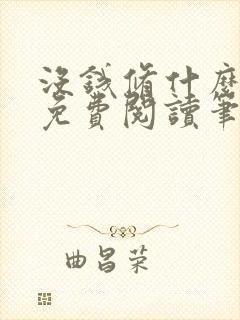 沒錢修什麼
免費閱讀筆
曲昌荣